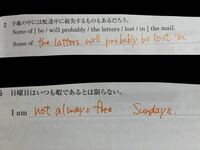 2 手紙の中には配達中に紛失するものもあるだろう。
Some of [ be / will probably / the letters / lost / in ] the mail.
Some of the latters will probably be lost in
5 日曜日はいつも暇であるとは限らない。
I am not always free Sundays.